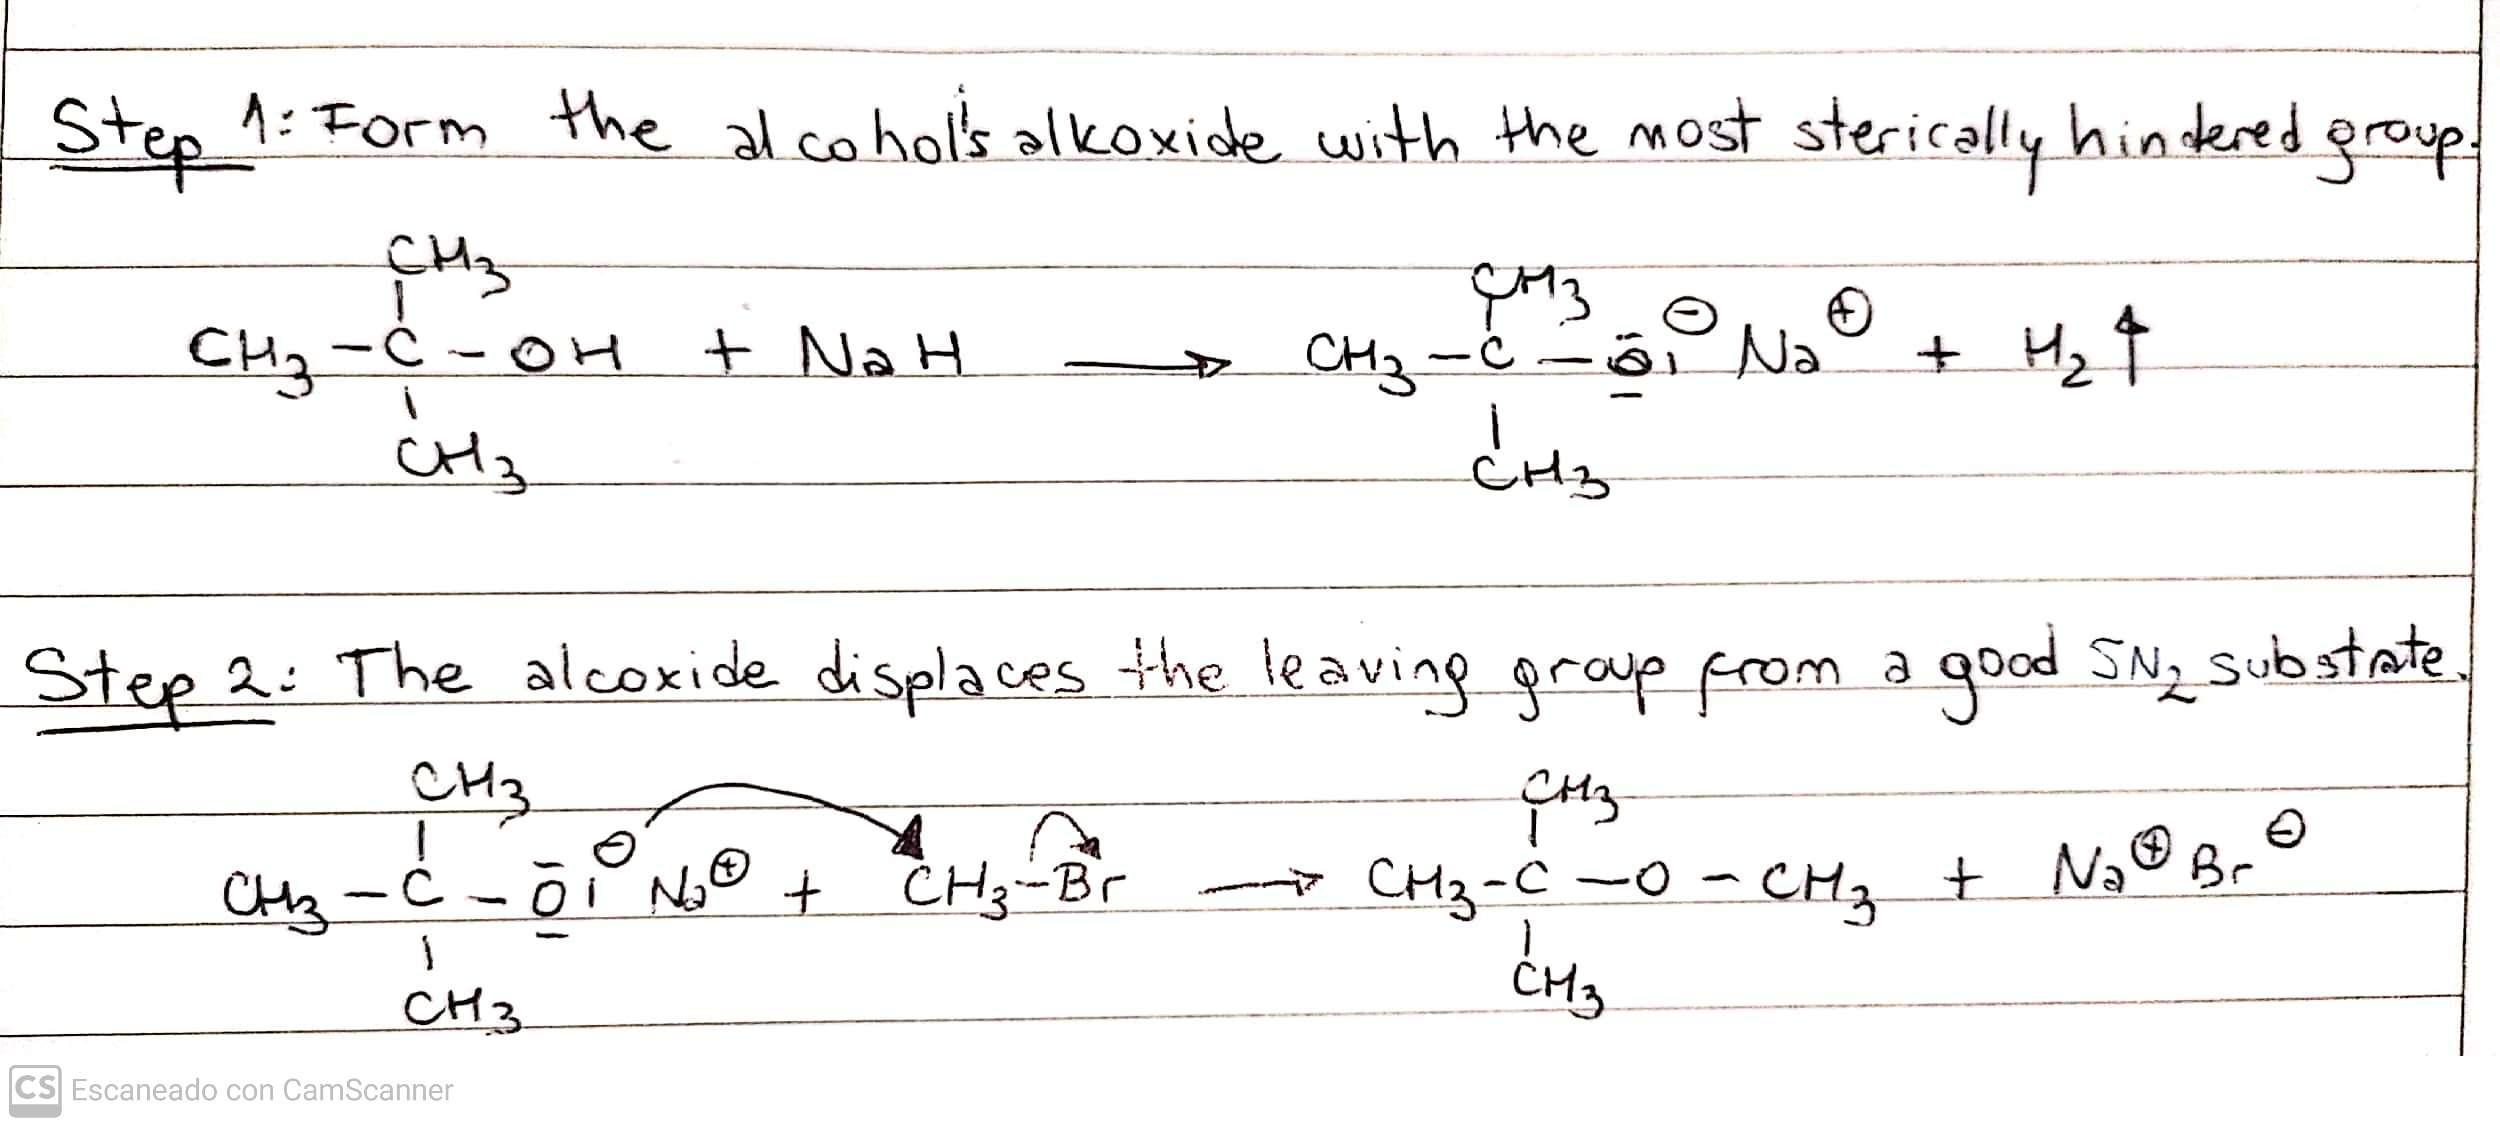 Step 1: Form the alcohol's alkoxide with the most sterically hindered group.
CH3
CH3
CH3 - C - OH + NaH → CH3 - C - O ⊖ Na ⊕ + H2 ↑
CH3
CH3
Step 2: The alcoxide displaces the leaving group from a good SN2 substrate.
CH3
CH3
CH3 - C - O ⊖ Na ⊕ + CH3 - Br → CH3 - C - O - CH3 + Na ⊕ Br ⊖
CH3
CH3
CS Escaneado con CamScanner